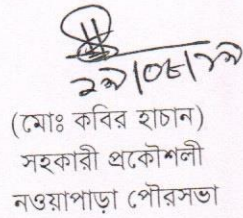 (মোঃ কবির হাচান)
সহকারী প্রকৌশলী
নওয়াপাড়া পৌরসভা